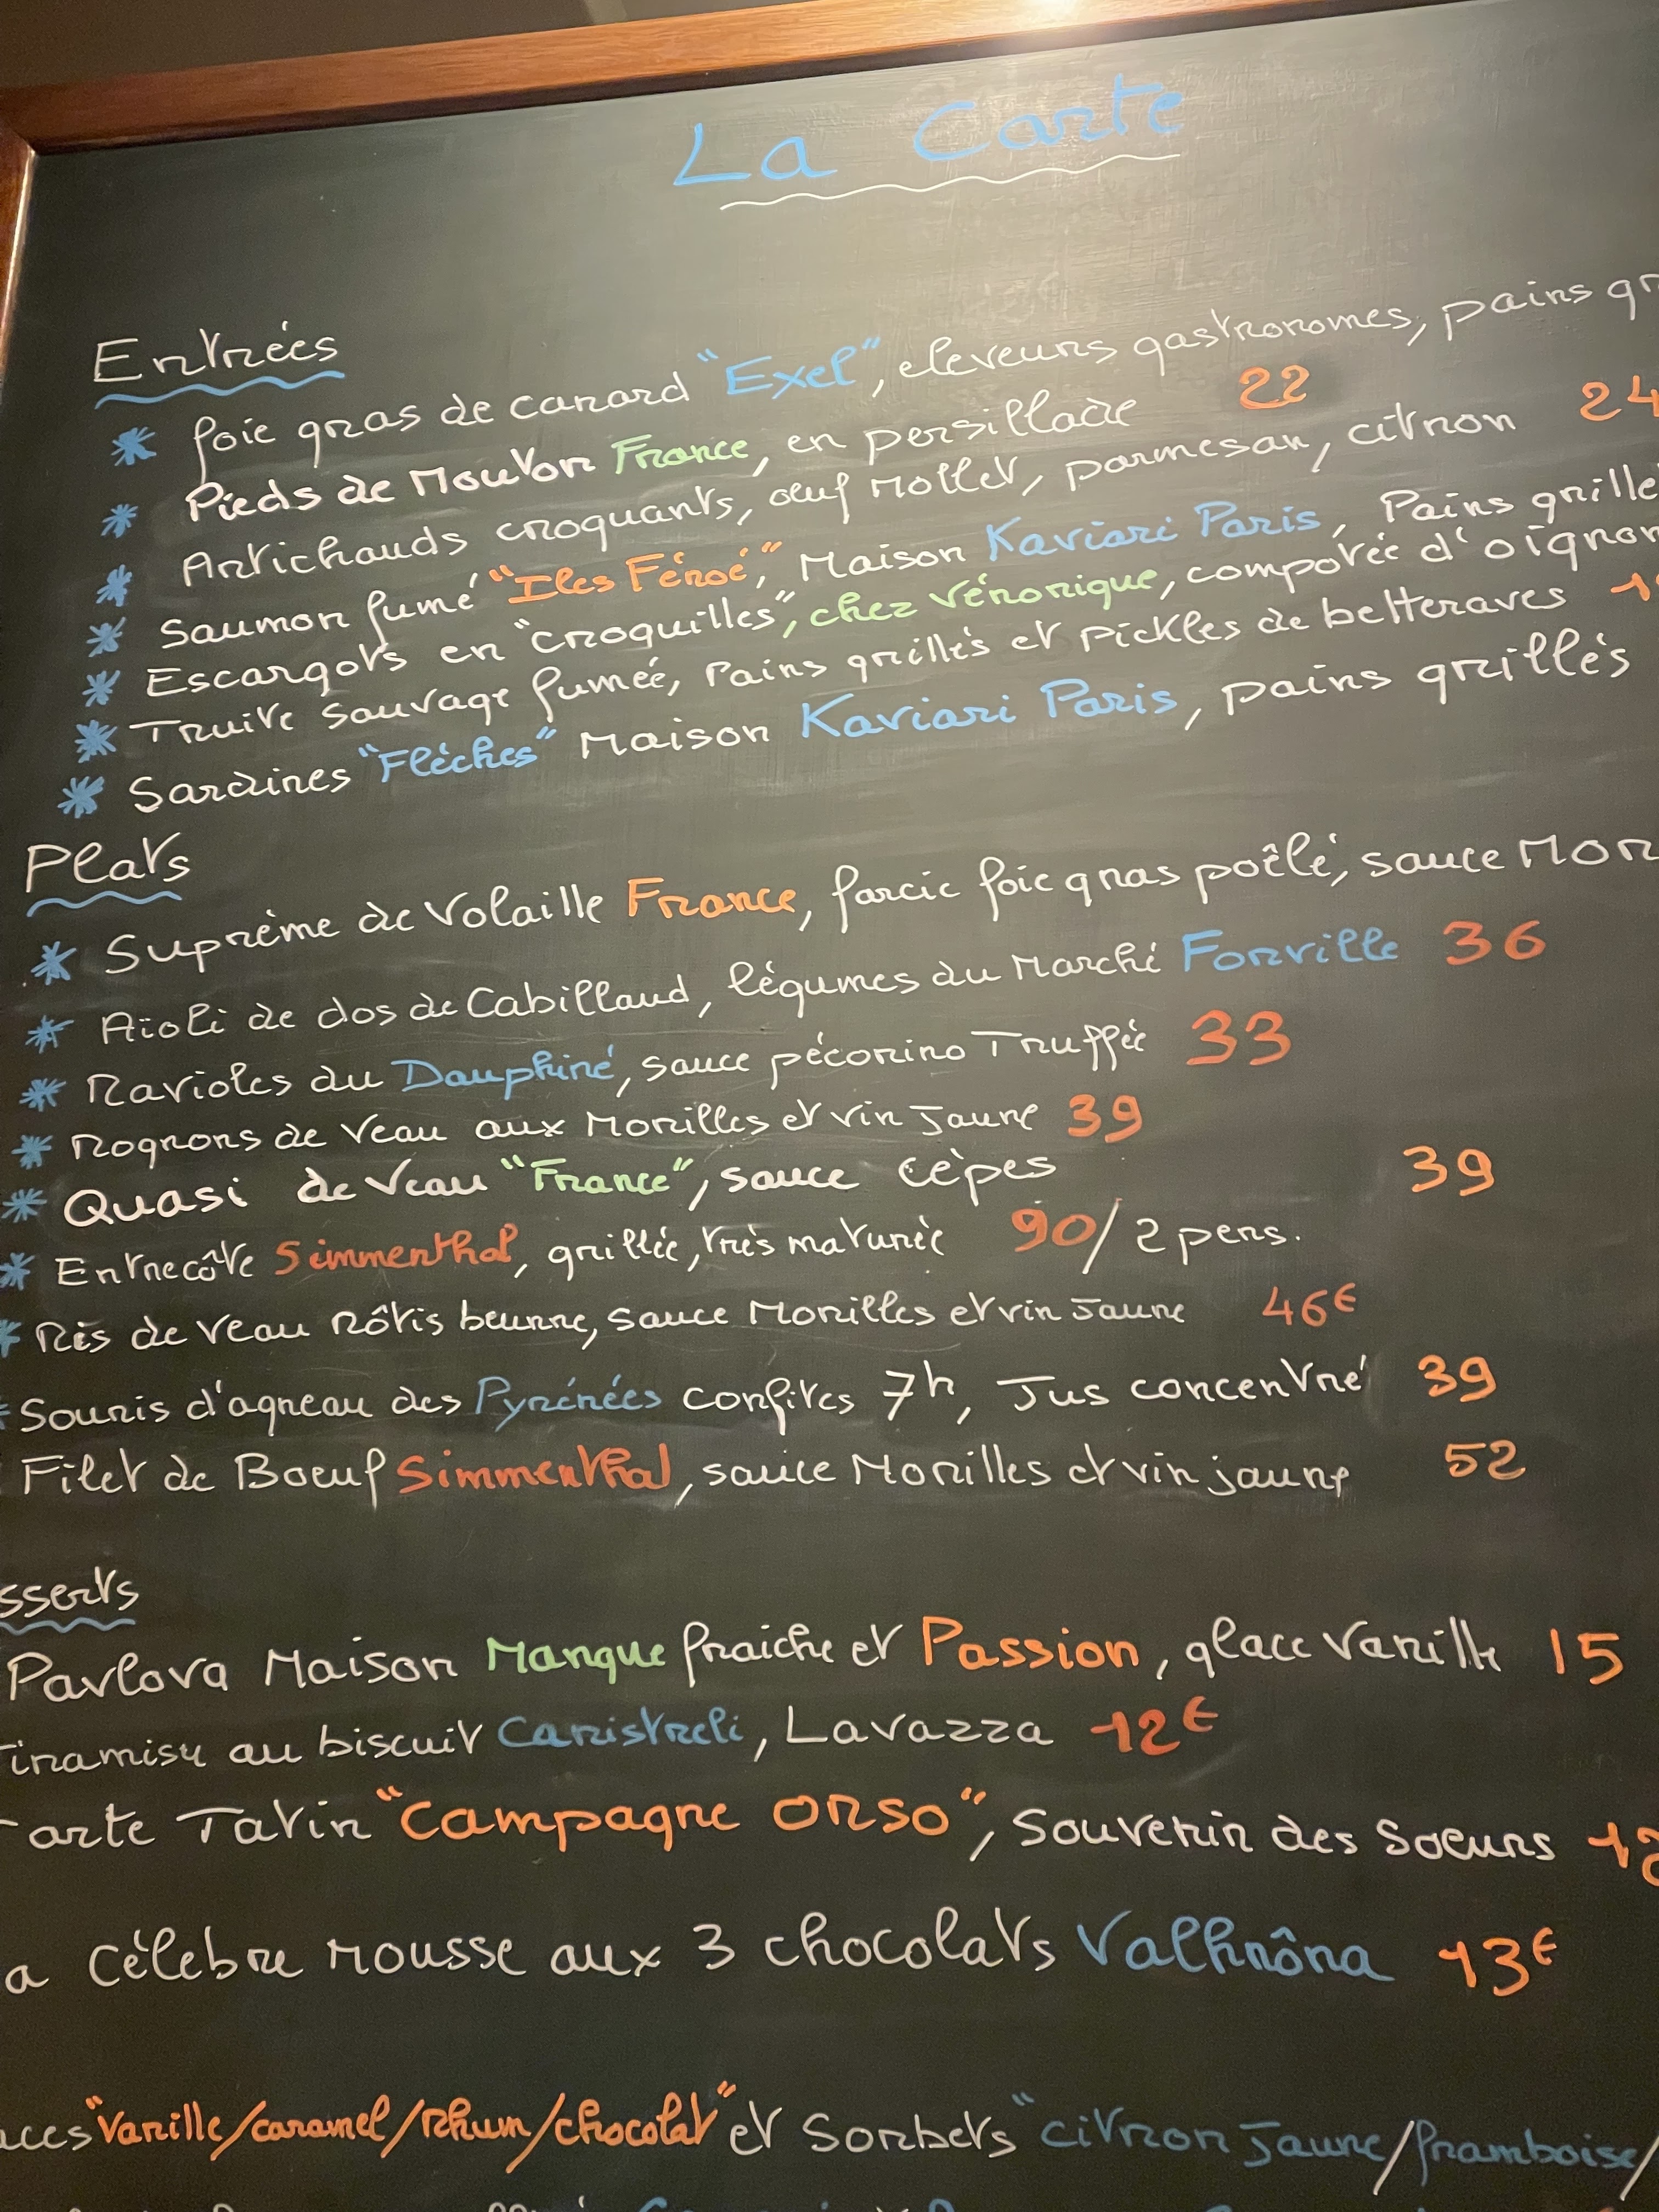 La Carte
Entrées
* foie gras de canard "Exel", eleveurs gastronomes, pains gr
* Pieds de Mouton France, en persillade 22
* Artichauds croquants, œuf mollet, parmesan, citron 24
* Saumon fumé "Iles Féroé", Maison Kaviari Paris, Pains grillé
* Escargots en "croquilles", chez Véronique, compotée d'oignon
* Truite sauvage fumée, Pains grillés et pickles de betteraves
* Sardines "Flèches" Maison Kaviari Paris, pains grillés
Plats
* Suprème de Volaille France, farcie foie gras poêlé, sauce Mor
* Aïoli de dos de Cabillaud, légumes du Marché Forville 36
* Ravioles du Dauphiné, sauce pécorino Truffée 33
* Rognons de Veau aux Morilles et vin Jaune 39
* Quasi de Veau "France", sauce cèpes 39
* Entrecôte Simmenthal, grillée, très maturée 90/2 pers.
* Ris de veau Rôtis beurre, sauce Morilles et vin Jaune 46€
* Souris d'agneau des Pyrénées confites 7h, Jus concentré 39
Filet de Boeuf Simmenthal, sauce Morilles et vin jaune 52
sserts
Pavlova Maison Mangue fraiche et Passion, glace vanille 15
Tiramisu au biscuit Canistreli, Lavazza 12€
arte Tatin "Campagne Orso", Souvenir des Soeurs
a célèbre mousse aux 3 chocolats Valhrôna 13€
aces "vanille/caramel/Rhum/chocolat" et Sorbets "citron Jaune/framboise/